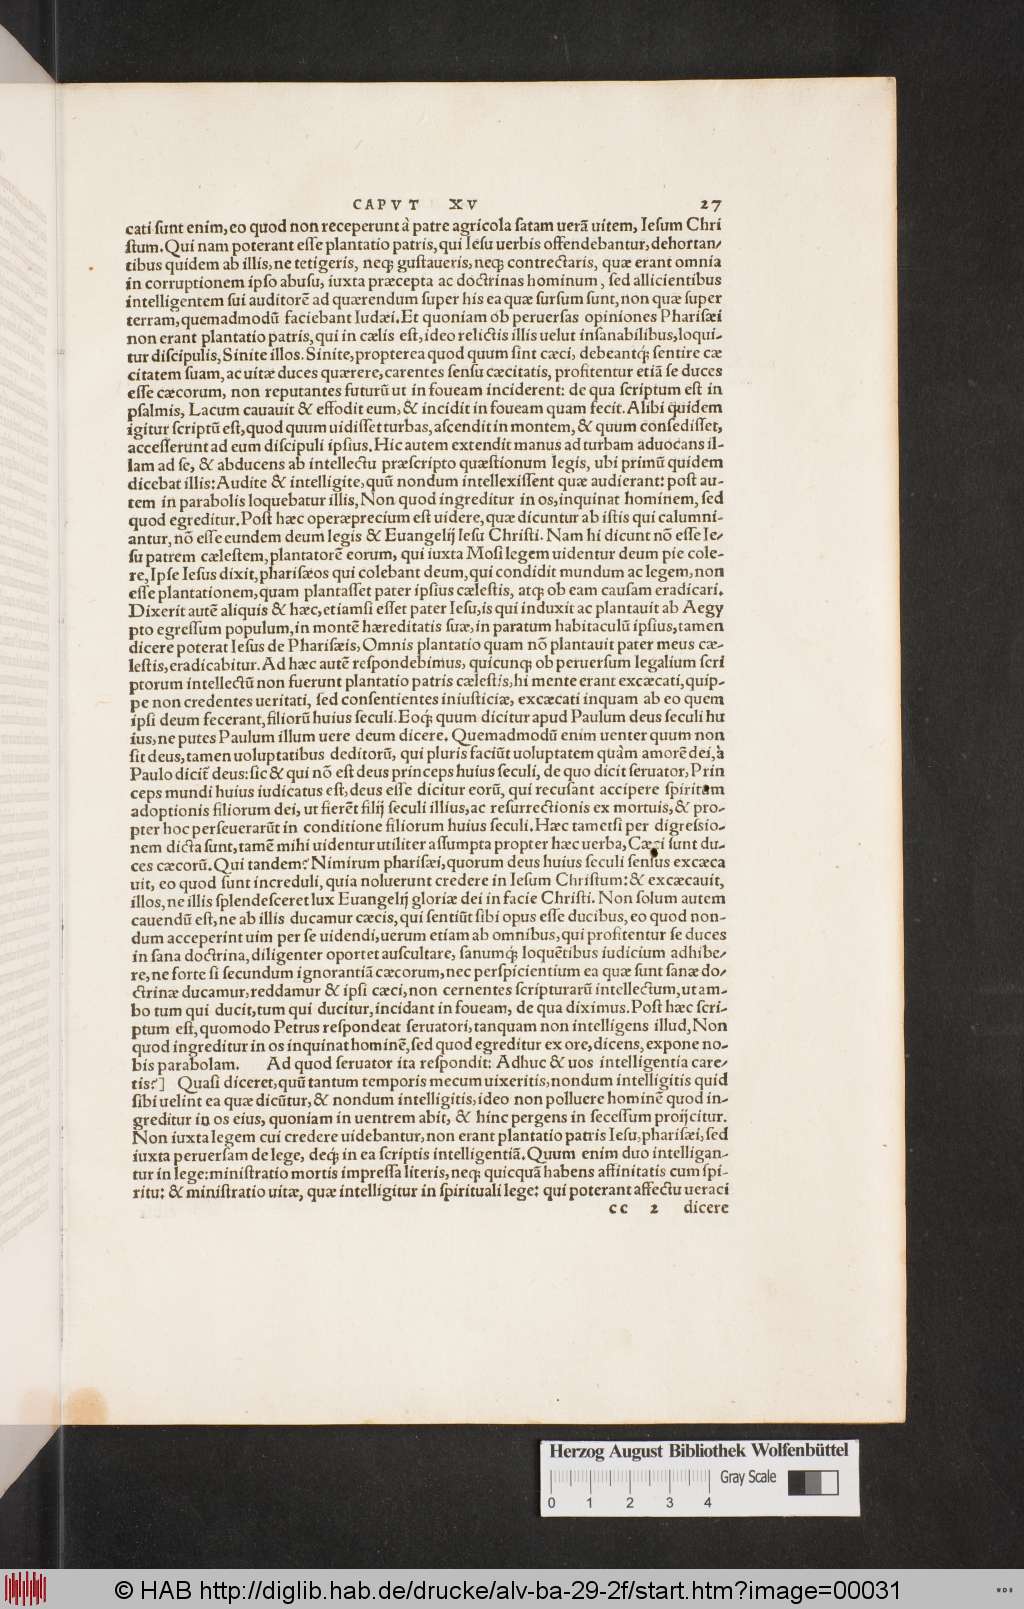 CAPVT XV 27
cati sunt enim, eo quod non receperunt à patre agricola satam uerã uitem, Iesum Chri
stum. Qui nam poterant esse plantatio patris, qui Iesu uerbis offendebantur, dehortan/
tibus quidem ab illis, ne tetigeris, neq; gustaueris, neq; contrectaris, quæ erant omnia
in corruptionem ipso abusu, iuxta præcepta ac doctrinas hominum, sed allicientibus
intelligentem sui auditorẽ ad quærendum super his ea quæ sursum sunt, non quæ super
terram, quemadmodũ faciebant Iudæi. Et quoniam ob peruersas opiniones Pharisæi
non erant plantatio patris, qui in cælis est, ideo relictis illis uelut insanabilibus, loqui-
tur discipulis, Sinite illos. Sinite, propterea quod quum sint cæci, debeantq; sentire cæ
citatem suam, ac uitæ duces quærere, carentes sensu cæcitatis, profitentur etiã se duces
esse cæcorum, non reputantes futurũ ut in foueam inciderent: de qua scriptum est in
psalmis, Lacum cauauit & effodit eum, & incidit in foueam quam fecit. Alibi quidem
igitur scriptũ est, quod quum uidisset turbas, ascendit in montem, & quum consedisset,
accesserunt ad eum discipuli ipsius. Hic autem extendit manus ad turbam aduocans il-
lam ad se, & abducens ab intellectu præscripto quæstionum legis, ubi primũ quidem
dicebat illis: Audite & intelligite, quũ nondum intellexissent quæ audierant: post au-
tem in parabolis loquebatur illis, Non quod ingreditur in os, inquinat hominem, sed
quod egreditur. Post hæc operæprecium est uidere, quæ dicuntur ab istis qui calumni-
antur, nõ esse eundem deum legis & Euangelij Iesu Christi. Nam hi dicunt nõ esse Ie/
su patrem cælestem, plantatorẽ eorum, qui iuxta Mosi legem uidentur deum pie cole-
re, Ipse Iesus dixit, pharisæos qui colebant deum, qui condidit mundum ac legem, non
esse plantationem, quam plantasset pater ipsius cælestis, atq; ob eam causam eradicari.
Dixerit autẽ aliquis & hæc, etiamsi esset pater Iesu, is qui induxit ac plantauit ab Aegy
pto egressum populum, in montẽ hæreditatis suæ, in paratum habitaculũ ipsius, tamen
dicere poterat Iesus de Pharisæis, Omnis plantatio quam nõ plantauit pater meus cæ-
lestis, eradicabitur. Ad hæc autẽ respondebimus, quicunq; ob peruersum legalium scri
ptorum intellectũ non fuerunt plantatio patris cælestis, hi mente erant excæcati, quip-
pe non credentes ueritati, sed consentientes iniusticiæ, excæcati inquam ab eo quem
ipsi deum fecerant, filiorũ huius seculi. Eoq; quum dicitur apud Paulum deus seculi hu
ius, ne putes Paulum illum uere deum dicere. Quemadmodũ enim uenter quum non
sit deus, tamen uoluptatibus deditorũ, qui pluris faciũt uoluptatem quàm amorẽ dei, à
Paulo dicit̃ deus: sic & qui nõ est deus princeps huius seculi, de quo dicit seruator, Prin
ceps mundi huius iudicatus est, deus esse dicitur eorũ, qui recusant accipere spiritum
adoptionis filiorum dei, ut fierẽt filij seculi illius, ac resurrectionis ex mortuis, & pro-
pter hoc perseuerarũt in conditione filiorum huius seculi. Hæc tametsi per digressio-
nem dicta sunt, tamẽ mihi uidentur utiliter assumpta propter hæc uerba, Cæci sunt du-
ces cæcorũ. Qui tandem? Nimirum pharisæi, quorum deus huius seculi sensus excæca
uit, eo quod sunt increduli, quia noluerunt credere in Iesum Christum: & excæcauit,
illos, ne illis splendesceret lux Euangelij gloriæ dei in facie Christi. Non solum autem
cauendũ est, ne ab illis ducamur cæcis, qui sentiũt sibi opus esse ducibus, eo quod non-
dum acceperint uim per se uidendi, uerum etiam ab omnibus, qui profitentur se duces
in sana doctrina, diligenter oportet auscultare, sanumq; loquẽtibus iudicium adhibe/
re, ne forte si secundum ignorantiã cæcorum, nec perspicientium ea quæ sunt sanæ do/
ctrinæ ducamur, reddamur & ipsi cæci, non cernentes scripturarũ intellectum, ut am-
bo tum qui ducit, tum qui ducitur, incidant in foueam, de qua diximus. Post hæc scri-
ptum est, quomodo Petrus respondeat seruatori, tanquam non intelligens illud, Non
quod ingreditur in os inquinat hominẽ, sed quod egreditur ex ore, dicens, expone no-
bis parabolam. Ad quod seruator ita respondit: Adhuc & uos intelligentia care/
tis?] Quasi diceret, quũ tantum temporis mecum uixeritis, nondum intelligitis quid
sibi uelint ea quæ dicũtur, & nondum intelligitis, ideo non polluere hominẽ quod in-
greditur in os eius, quoniam in uentrem abit, & hinc pergens in secessum proijcitur.
Non iuxta legem cui credere uidebantur, non erant plantatio patris Iesu, pharisæi, sed
iuxta peruersam de lege, deq; in ea scriptis intelligentiã. Quum enim duo intelligan-
tur in lege: ministratio mortis impressa literis, neq; quicquã habens affinitatis cum spi-
ritu: & ministratio uitæ, quæ intelligitur in spirituali lege: qui poterant affectu ueraci
cc 2 dicere
Herzog August Bibliothek Wolfenbüttel
Gray Scale
0 1 2 3 4
© HAB http://diglib.hab.de/drucke/alv-ba-29-2f/start.htm?image=00031
WDB